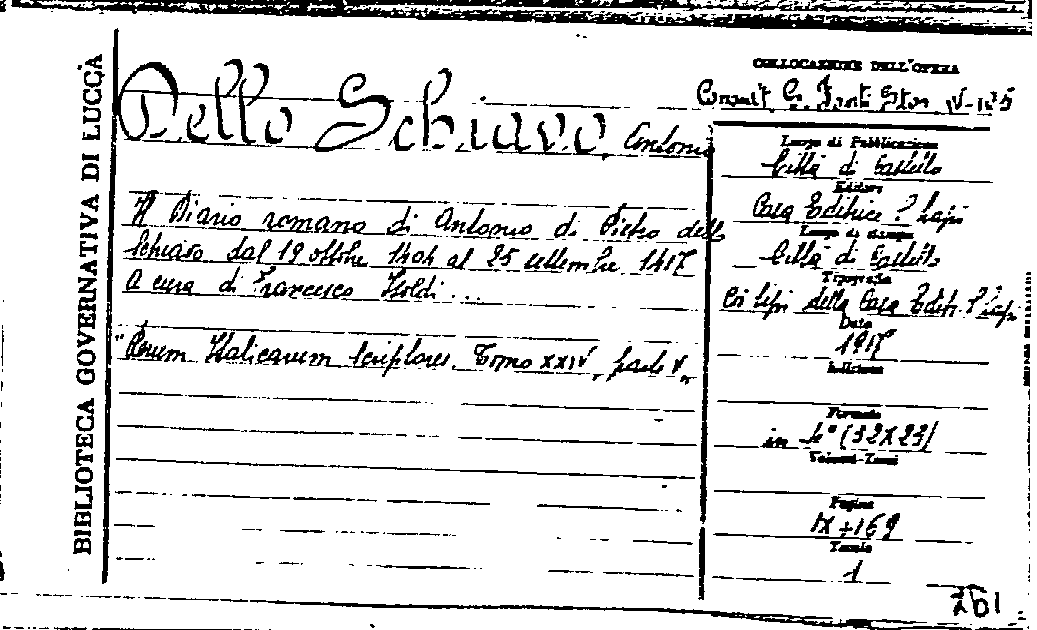 BIBLIOTECA GOVERNATIVA DI LUCCA
Dello Schiavo, Antonio
Il Diario romano di Antonio di Pietro dello
Schiavo dal 19 ottobre 1404 al 25 settembre 1417
A cura di Francesco Isoldi...
"Rerum Italicarum Scriptores. Tomo XXIV, parte V"
COLLOCAZIONE DELL'OPERA
Consult. G. Fonti Stor. IV-125
Luogo di Pubblicazione
Città di Castello
Editore
Casa Editrice S. Lapi
Luogo di stampa
Città di Castello
Tipografia
Coi tipi della Casa Edit. S. Lapi
Data
1917
Edizione
Formato
in 4° (32X23)
Volumi-Tomi
Pagine
IX+169
Tavole
1